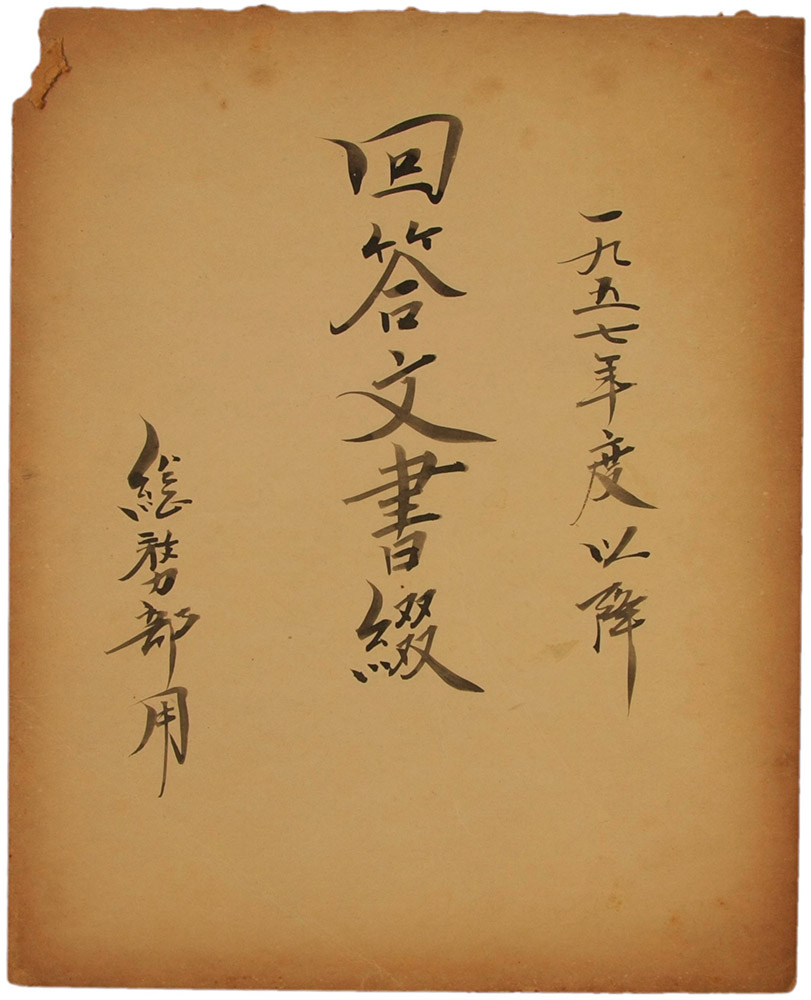 一九五七年度以降
回答文書綴
総務部用